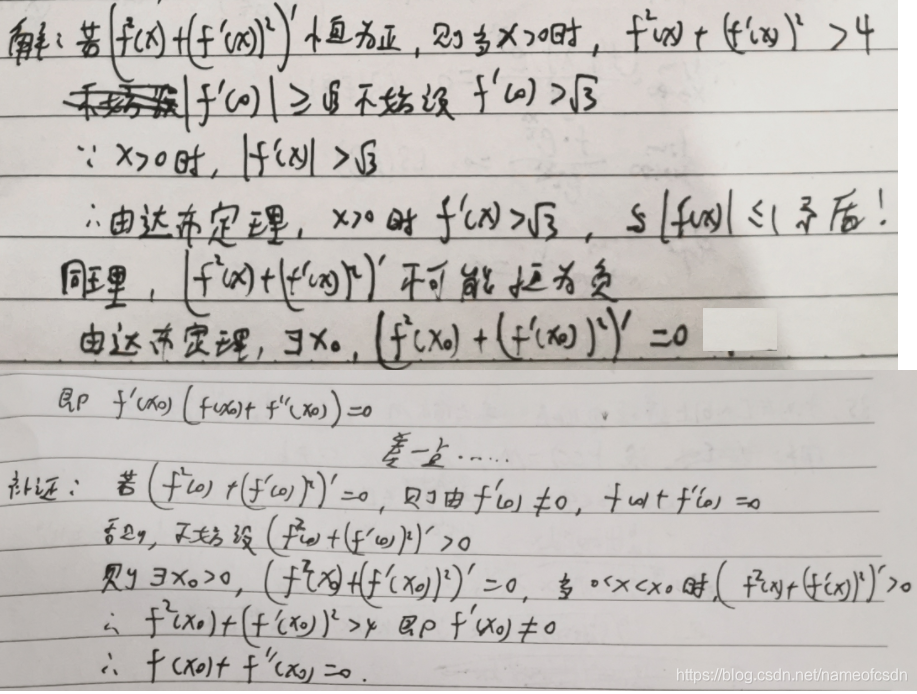 解：若(f²(x)+(f'(x))²)'恒为正，则当x>0时，f²(x)+(f'(x))²>4
|f'(0)|≥√3 不妨设 f'(0)>√3
∵ x>0时，|f'(x)|>√3
∴由达布定理，x>0时 f'(x)>√3，与|f(x)|≤1矛盾！
同理，(f²(x)+(f'(x))²)'不可能恒为负
由达布定理，∃x₀，(f²(x₀)+(f'(x₀))²)'=0
即 f'(x₀)(f(x₀)+f''(x₀))=0
差一点……
补证：若(f²(0)+(f'(0))²)'=0，则由f'(0)≠0，f(0)+f'(0)=0
否则，不妨设(f²(0)+(f'(0))²)'>0
则∃x₀>0，(f²(x₀)+(f'(x₀))²)'=0，当0<x<x₀时，(f²(x)+(f'(x))²)'>0
∴ f²(x₀)+(f'(x₀))²>4 即 f'(x₀)≠0
∴ f(x₀)+f''(x₀)=0.
https://blog.csdn.net/nameofcsdn